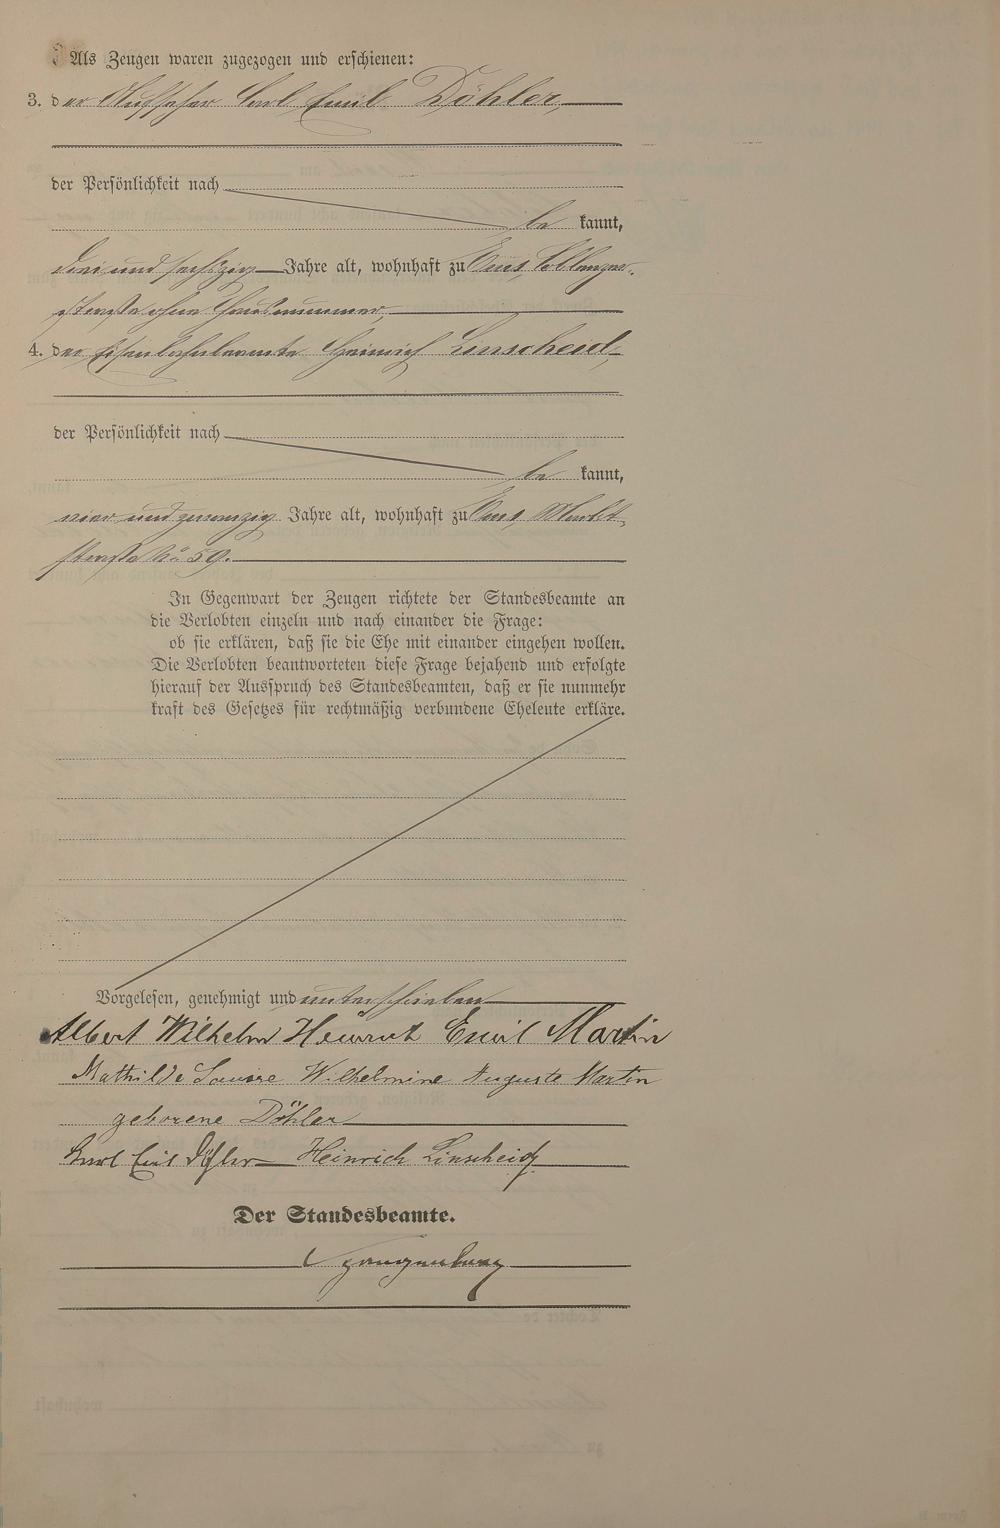 Als Zeugen waren zugezogen und erschienen:
3. der Aufseher Carl Emil Döhler,
der Persönlichkeit nach
be kannt,
drei und sechszig Jahre alt, wohnhaft zu Ems, Coblenzer-
straße ohne Hausnummer,
4. der Eisenbahnbeamte Heinrich Linscheid,
der Persönlichkeit nach
be kannt,
vier und zwanzig Jahre alt, wohnhaft zu Ems, Markt
straße No 59.
In Gegenwart der Zeugen richtete der Standesbeamte an
die Verlobten einzeln und nach einander die Frage:
ob sie erklären, daß sie die Ehe mit einander eingehen wollen.
Die Verlobten beantworteten diese Frage bejahend und erfolgte
hierauf der Ausspruch des Standesbeamten, daß er sie nunmehr
kraft des Gesetzes für rechtmäßig verbundene Eheleute erkläre.
Vorgelesen, genehmigt und unterschrieben
Albert Wilhelm Heinrich Emil Martin
Mathilde Louise Wilhelmine Auguste Martin
geborene Döhler
Karl Emil Döhler Heinrich Linscheid
Der Standesbeamte.
Spangenberg